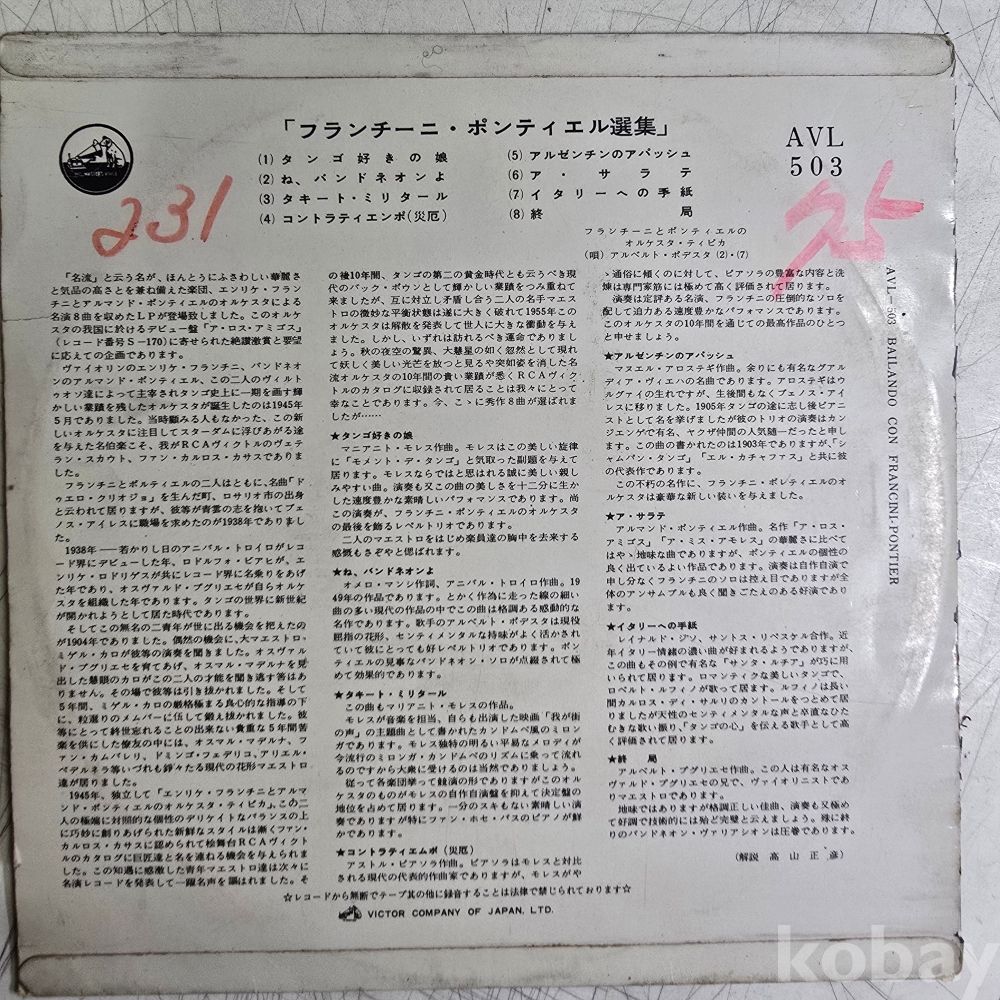 「フランチーニ・ポンティエル選集」
AVL
503
(1) タンゴ好きの娘
(2) ね、バンドネオンよ
(3) タキート・ミリタール
(4) コントラティエンポ(災厄)
(5) アルゼンチンのアパッシュ
(6) ア・サラテ
(7) イタリーへの手紙
(8) 終局
フランチーニとポンティエルの
オルケスタ・ティピカ
(唄) アルベルト・ポデスタ (2)・(7)
231
95
「名流」と云う名が、ほんとうにふさわしい華麗さ
と気品の高さとを兼ね備えた楽団、エンリケ・フラン
チニとアルマンド・ポンティエルのオルケスタによる
名演8曲を収めたLPが登場致しました。このオルケ
スタの我国に於けるデビュー盤「ア・ロス・アミゴス」
(レコード番号S-170)に寄せられた絶讃激賞と要望
に応えての企画であります。
ヴァイオリンのエンリケ・フランチニ、バンドネオ
ンのアルマンド・ポンティエル、この二人のヴィルト
ゥオソ達によって主宰されタンゴ史上に一期を画す輝
かしい業蹟を残したオルケスタが誕生したのは1945年
5月でありました。当時顧みる人もなかった、この新
しいオルケスタに注目してスターダムに浮びあがる途
を与えた名伯楽こそ、我がRCAヴィクトルのヴェテ
ラン・スカウト、ファン・カルロス・カサスでありま
した。
フランチニとポルティエルの二人はともに、名曲「ド
ゥエロ・クリオジョ」を生んだ町、ロサリオ市の出身
と云われて居りますが、彼等が青雲の志を抱いてブェ
ノス・アイレスに職場を求めたのが1938年でありまし
た。
1938年――若かりし日のアニバル・トロイロがレコ
ード界にデビューした年、ロドルフォ・ビアヒが、エ
ンリケ・ロドリゲスが共にレコード界に名乗りをあげ
た年であり、オスヴァルド・プグリエセが自らオルケ
スタを組織した年であります。タンゴの世界に新世紀
が開かれようとして居た時代であります。
そしてこの無名の二青年が世に出る機会を把えたの
が1904年でありました。偶然の機会に、大マエストロ・
ミゲル・カロが彼等の演奏を聞きました。オスヴァル
ド・プグリエセを育てあげ、オスマル・マデルナを見
出した慧眼のカロがこの二人の才能を聞き逃す答はあ
りません。その場で彼等は引き抜かれました。そして
5年間、ミゲル・カロの厳格極まる良心的な指導の下
に、粒選りのメムバーに伍して鍛え抜かれました。彼
等にとって終世忘れることの出来ない貴重な5年間苦
楽を供にした僚友の中には、オスマル・マデルナ、フ
ァン・カムバレリ、ドミンゴ・フェデリコ、アリエル・
ペデルネラ等いづれも錚々たる現代の花形マエストロ
達が居りました。
1945年、独立して「エンリケ・フランチニとアルマ
ンド・ポンティエルのオルケスタ・ティピカ」、この二
人の極端に対照的な個性のデリケイトなバランスの上
に巧妙に創りあげられた新鮮なスタイルは漸くファン・
カルロス・カサスに認められて桧舞台RCAヴィクト
ルのカタログに巨匠達と名を連ねる機会を与えられま
した。この知遇に感激した青年マエストロ達は次々に
名演レコードを発表して一躍名声を謳はれました。そ
の後10年間、タンゴの第二の黄金時代とも云うべき現
代のバック・ボウンとして輝かしい業蹟をつみ重ねて
来ましたが、互に対立し矛盾し合う二人の名手マエス
トロの微妙な平衡状態は遂に大きく破れて1955年この
オルケスタは解散を発表して世人に大きな衝動を与え
ました。しかし、いずれは訪れるべき運命でありまし
ょう。秋の夜空の驚異、大慧星の如く忽然として現れ
て妖しく美しい光芒を放つと見るや突如姿を消した名
流オルケスタの10年間の貴い業蹟が悉くRCAヴィク
トルのカタログに収録されて居ることは我々にとって
幸なことであります。今、こゝに秀作8曲が選ばれま
したが……
★タンゴ好きの娘
マニアニト・モレス作曲。モレスはこの美しい旋律
に「モメント・デ・タンゴ」と気取った副題を与えて
居ります。モレスならではと思はれる誠に美しい親し
みやすい曲。演奏も又この曲の美しさを十二分に生か
した速度豊かな素晴しいパフォマンスであります。尚
この演奏が、フランチニ・ポンティエルのオルケスタ
の最後を飾るレベルトリオであります。
二人のマエストロをはじめ楽員達の胸中を去来する
感慨もさぞやと偲ばれます。
★ね、バンドネオンよ
オメロ・マンシ作詞、アニバル・トロイロ作曲。19
49年の作品であります。とかく作為に走った線の細い
曲の多い現代の作品の中でこの曲は格調ある感動的な
名作であります。歌手のアルベルト・ポデスタは現役
屈指の花形、センティメンタルな持味がよく活かされ
ていて彼にとっても好レペルトリオであります。ポン
ティエルの見事なバンドネオン・ソロが点綴されて極
めて効果的であります。
★タキート・ミリタール
この曲もマリアニト・モレスの作品。
モレスが音楽を担当、自らも出演した映画「我が街
の声」の主題曲として書かれたカンドムベ風のミロン
ガであります。モレス独特の明るい平易なメロディが
今流行のミロンガ・カンドムベのリズムに乗って流れ
るのですから大衆に受けるのは当然でありましょう。
従って各楽団挙って競演の形でありますがこのオル
ケスタのものがモレスの自作自演盤を抑えて決定盤の
地位を占めて居ります。一分のスキもない素晴しい演
奏でありますが特にファン・ホセ・パスのピアノが鮮
かであります。
★コントラティエムポ (災厄)
アストル・ピアソラ作曲。ピアソラはモレスと対比
される現代の代表的作曲家でありますが、モレスがや
ゝ通俗に傾くのに対して、ピアソラの豊富な内容と洗
煉は専門家筋には極めて高く評価されて居ります。
演奏は定評ある名演、フランチニの圧倒的なソロを
配して迫力ある速度豊かなパフォマンスであります。
このオルケスタの10年間を通じての最高作品のひとつ
と申せましょう。
★アルゼンチンのアパッシュ
マヌエル・アロステギ作曲。余りにも有名なグアル
ディア・ヴィエハの名曲であります。アロステギはウ
ルグァイの生れですが、生後間もなくブェノス・アイ
レスに移りました。1905年タンゴの途に志し後ピアニ
ストとして名を挙げましたが彼のトリオの演奏はカン
ジェンゲで有名、ヤクザ仲間の人気随一だったと申し
ます。この曲の書かれたのは1903年でありますが、「シ
ャムパン・タンゴ」「エル・カチャファス」と共に彼
の代表作であります。
この不朽の名作に、フランチニ・ポレティエルのオ
ルケスタは豪華な新しい装いを与えました。
★ア・サラテ
アルマンド・ポンティエル作曲。名作「ア・ロス・
アミゴス」「ア・ミス・アモレス」の華麗さに比べて
はや、地味な曲でありますが、ポンティエルの個性の
良く出ているよい作品であります。演奏は自作自演で
申し分なくフランチニのソロは控え目でありますが全
体のアンサムブルも良く聞きごたえのある好演であり
ます。
★イタリーへの手紙
レイナルド・ジソ、サントス・リペスケル合作。近
年イタリー情緒の濃い曲が好まれるようでありますが、
この曲もその例で有名な「サンタ・ルチア」が巧に用
いられて居ります。ロマンティクな美しいタンゴで、
ロベルト・ルフィノが歌って居ります。ルフィノは長い
間カルロス・ディ・サルリのカントールをつとめて居
りましたが天性のセンティメンタルな声と卒直なひた
むきな歌い振り、「タンゴの心」を伝える歌手として高
く評価されて居ります。
★終局
アルベルト・プグリエセ作曲。この人は有名なオス
ヴァルド・プグリエセの兄でヴァイオリニストであり
マエストロであります。
地味ではありますが格調正しい佳曲、演奏も又極め
て好調で技術的には殆ど完璧と云えましょう。殊に終
りのバンドネオン・ヴァリアシオンは圧巻であります。
(解説 高山正彦)
☆レコードから無断でテープ其の他に録音することは法律で禁じられております☆
VICTOR COMPANY OF JAPAN, LTD.
AVL-503 BAILANDO CON FRANCINI-PONTIER
kobay